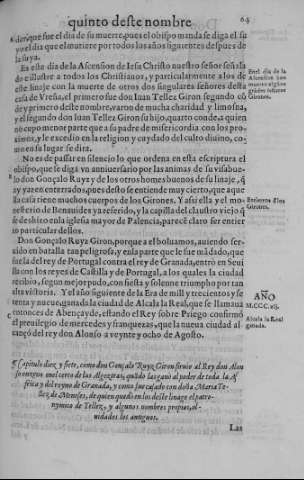 quinto deste nombre 64
clerique fue el dia de su muerte, pues el obispo manda se diga el su
yo el dia que el muriere por todos los años siguientes despues de
la suya.
En este dia de la Ascension de Iesu Christo nuestro señor señala
do e illustre a todos los Christianos, y particularmente a los de
este linaje con la muerte de otros dos singulares señores desta
casa de Vreña, el primero fue don Iuan Tellez Giron segundo cō
de y primero deste nombre, varon de mucha charidad y limosna,
y el segundo don Iuan Tellez Giron su hijo, quarto conde, a quien
no cupo menor parte que a su padre de misericordia con los pro-
ximos, y le excedio en la religion y cuydado del culto diuino, co-
mo en su lugar se dira.
No es de passar en silencio lo que ordena en esta escriptura el
obispo, que se diga vn anniuersario por las animas de su visabue-
lo don Gonçalo Ruyz y de los otros homes buenos de su linaje, q̄
ay yazen enterrados, pues desto se entiende muy cierto, que aque
lla casa tiene muchos cuerpos de los Girones. Y assi ella y el mo-
nesterio de Benuuider y
la capilla del claustro viejo q̄
es dicho en la iglesia mayor de Palencia, parece claro ser entier
ro particular dellos.
Don Gonçalo Ruyz Giron, porque a el boluamos, auiendo ser-
uido en batalla tan peligrosa, y en la parte que le fue mādado, que
fue la del rey de Portugal contra el rey de Granada, entrò en Seui
lla con los reyes de Castilla y de Portugal, a los quales la ciudad
recibio, segun mejor pudo, con fiesta y solenne triumpho por tan
alta victoria. Y el año siguiente de la Era de mil y trezientos y se
tenta y nueue, ganada la ciudad de Alcala la Real, que se llamaua
entonces de Abençayde, estando el Rey sobre Priego confirmó
el preuilegio de mercedes y franquezas, que la nueua ciudad al-
cançó del rey don Alonso a veynte y ocho de Agosto.
¶ Capitulo diez y siete, como don Gonçalo Ruyz Giron siruio al Rey don Alon
so onzeno en el cerco de las Algeziras, quādo las ganò al poder de toda la A-
frica y del reyno de Granada, y como fue casado con doña Maria Te-
llez de Meneses, de quien quedò en los deste linage el patro-
nymico de Tellez, y algunos nombres propios, al-
uidados los antiguos.
Las
En el dia de la
Ascension han
muerto algunos
señores
Girones.
Entierros d̄ los
Girones.
AÑO
M.CCC.xlj.
Alcala la Real
ganada.